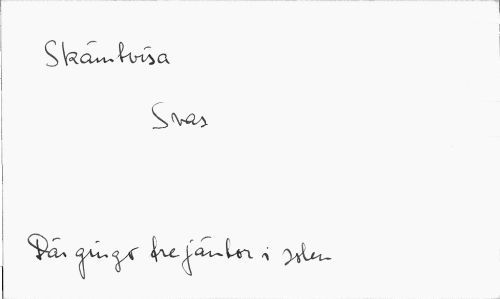 Skämtvisa
Svas
Där gingo tre jäntor i solen